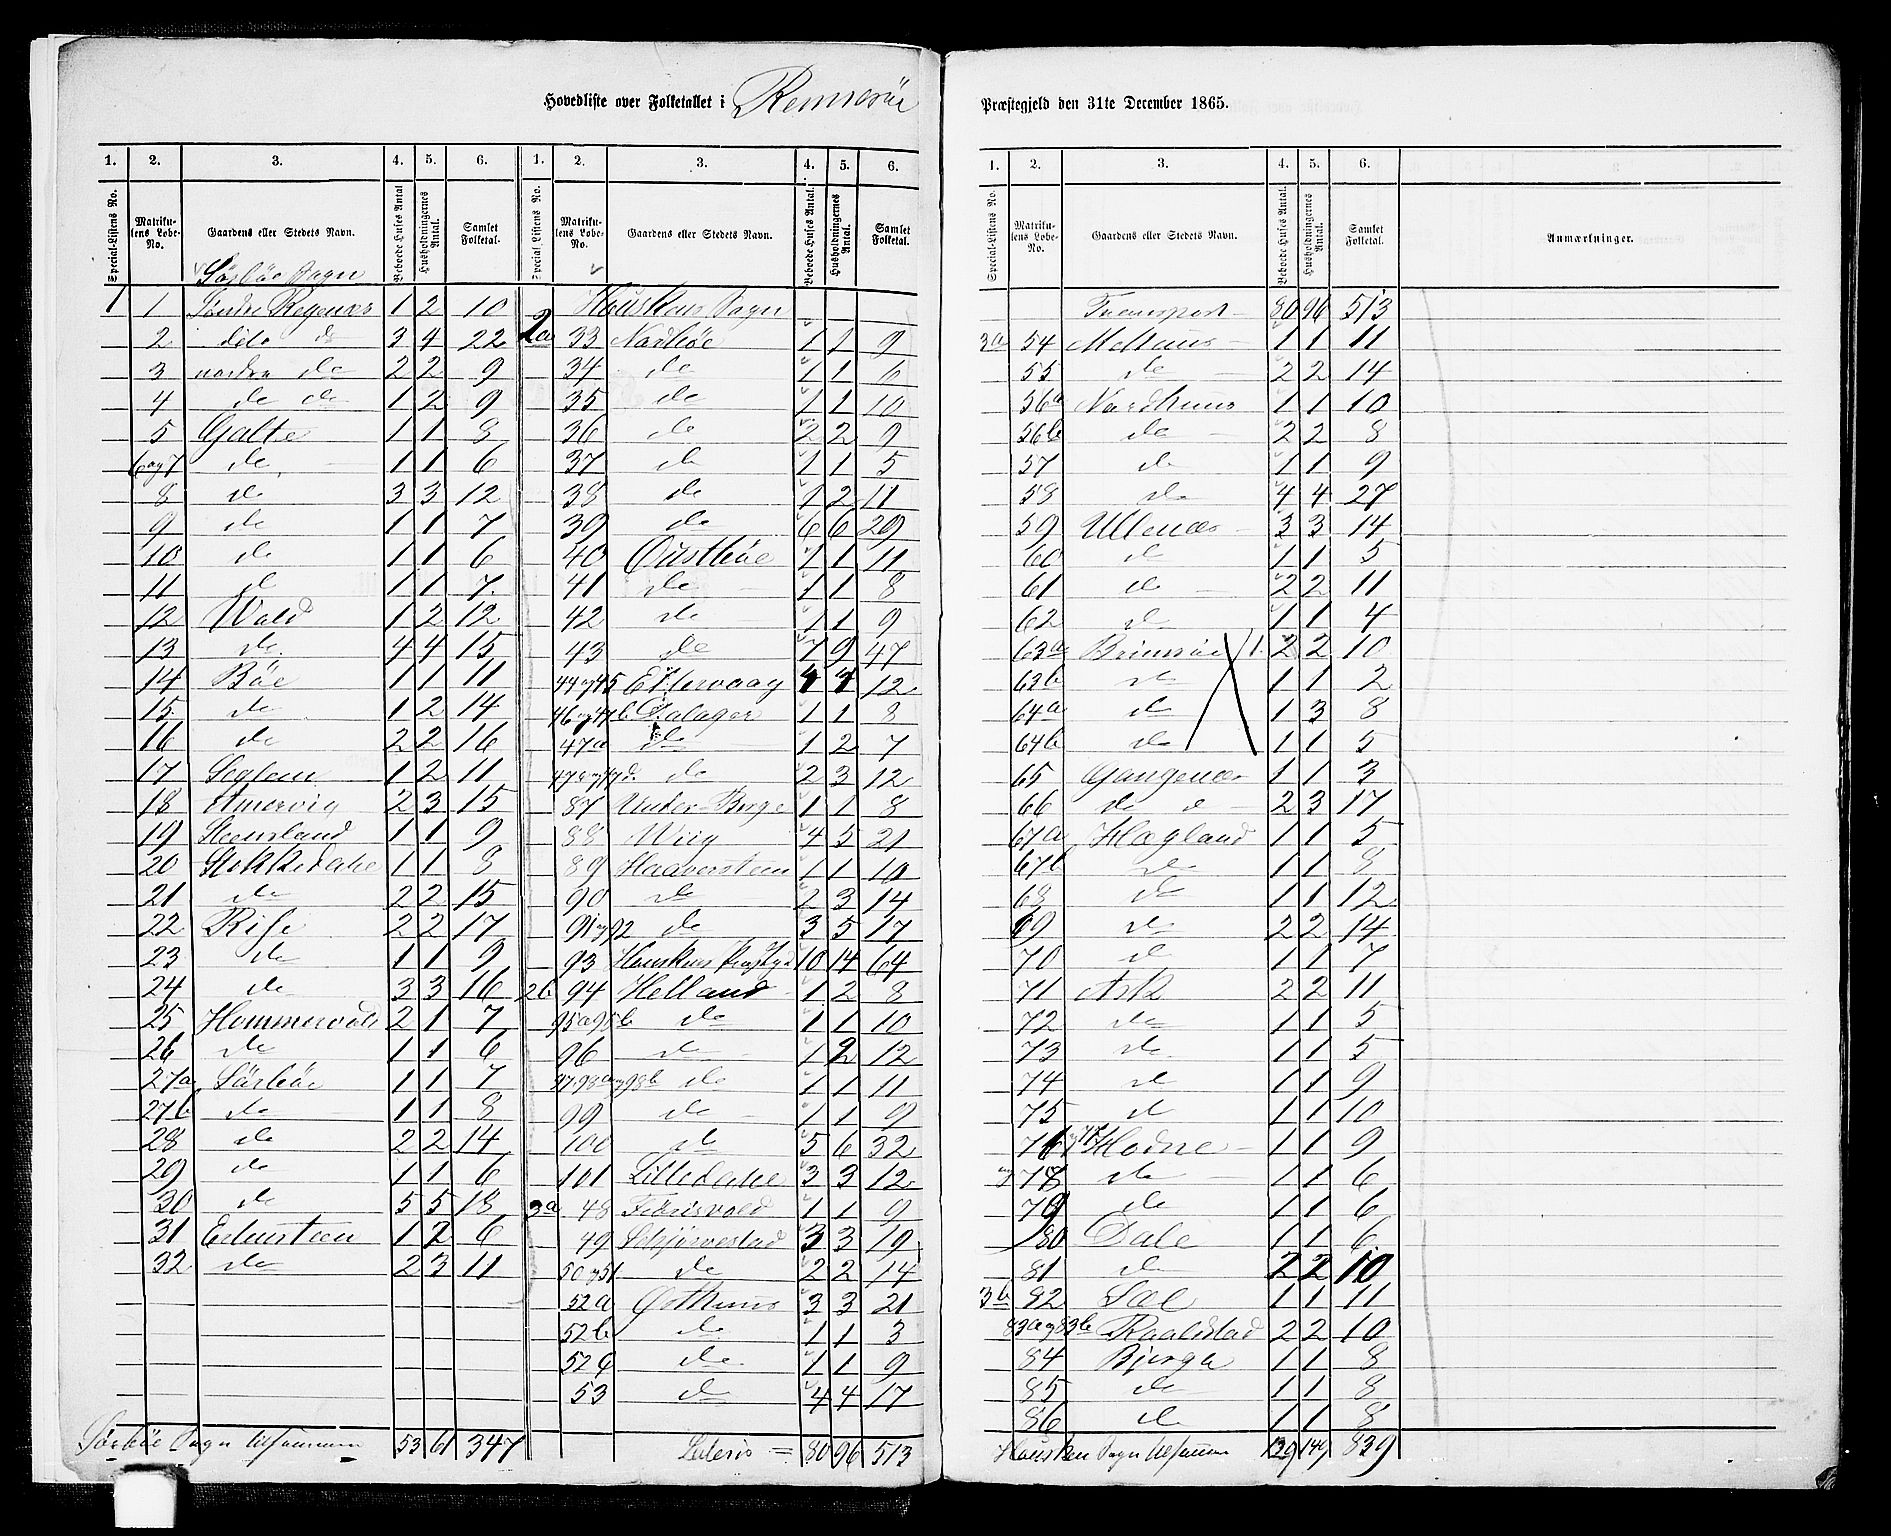 Hovedliste over Folketallet i Rennesöe
Præstegjeld den 31te December 1865.
1. 2. 3. 4. 5. 6. 1. 2. 3. 4. 5. 6.
Special-Listens No. Matrikulens Løbe-No. Gaardens eller Stedets Navn. Beboede Huses Antal Husholdningernes Antal. Samlet Folketal. Special-Listens No. Matrikulens Løbe-No. Gaardens eller Stedets Navn. Beboede Huses Antal. Husholdningernes Antal. Samlet Folketal.
Sörböe Sogn
1 1 Söndre Regenæs 1 2 10
2 dito do 3 4 22
3 nordra do 2 2 9
4 do do 1 2 9
5 Galte 1 1 8
6 og 7 do 1 1 6
8 do 3 3 12
9 do 1 1 7
10 do 1 1 6
11 do 1 1 7
12 Wold 1 2 12
13 do 4 4 15
14 Böe 1 1 11
15 do 1 2 14
16 do 2 2 16
17 Seglem 1 2 11
18 Amervig 2 3 15
19 Steensland 1 1 9
20 Stokkedahe 1 1 8
21 do 2 2 15
22 Rise 2 2 17
23 do 1 1 9
24 do 3 3 16
25 Hommervold 2 1 7
26 do 1 1 6
27a Sörböe 1 1 7
27b do 1 1 8
28 do 2 2 14
29 do 1 1 6
30 do 5 5 18
31 Edensteen 1 2 6
32 do 2 3 11
Sörböe Sogn tilsammen 53 61 347
Housken Sogn
2a 33 Nordböe 1 1 9
34 do 1 1 6
35 do 1 1 10
36 do 2 2 9
37 do 1 1 5
38 do 1 2 11
39 do 6 6 29
40 Oustböe 1 1 11
41 do 1 1 8
42 do 1 1 9
43 do 7 9 47
44 og 45 Eltervaag 1 1 12
46 og 47b Dalager 1 1 8
47a do 1 2 7
47c og 47d do 2 3 12
87 Under-Berge 1 1 8
88 Wiig 4 5 21
89 Haaversteen 1 1 10
90 do 2 3 14
91 og 92 do 3 5 17
93 Hausken 10 14 64
2b 94 Helland 1 2 8
95a 95b do 1 1 10
96 do 1 2 12
97, 98a og 98b do 1 1 11
99 do 1 1 9
100 do 5 6 32
101 Lilledahe 3 3 12
3a 48 Föiusvold 1 1 9
49 Schjörvestad 3 3 19
50 og 51 do 2 2 14
52a Östhuus 3 3 21
52b do 1 1 3
52c do 1 1 9
53 do 4 4 17
Lateris = 80 96 513
1. 2. 3. 4. 5. 6.
Special-Listens No. Matrikulens Løbe-No. Gaardens eller Stedets Navn. Beboede Huses Antal. Husholdningernes Antal. Samlet Folketal. Anmærkninger.
Transport 80 96 513
3a 54 Meltuns 1 1 11
55 do 2 2 14
56a Nordhuus 1 1 10
56b do 2 2 8
57 do 1 1 9
58 do 4 4 27
59 Ullenæs 3 3 14
60 do 1 1 5
61 do 2 2 11
62 do 1 1 4
63a Brimsöe 2 2 10
63b do 1 1 2
64a do 1 3 8
64b do 1 1 5
65 Gangenæs 1 1 3
66 do 2 3 17
67a Hægland 1 1 5
67b do 1 1 8
68 do 1 1 12
69 do 2 2 14
70 do 1 1 7
71 Ask 2 2 11
72 do 1 1 5
73 do 1 1 5
74 do 1 1 9
75 do 1 1 10
76 og 77 Hodne 1 1 9
78 do 1 1 6
79 do 1 1 6
80 Dale 1 1 6
81 do 2 2 10
3b 82 Sæl 1 1 11
83a og 83b Raalstad 2 2 10
84 Bjerga 1 1 8
85 do 1 1 8
86 do 1 1 8
Housken Sogn tilsammen 139 149 839